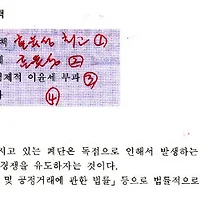 책
책 효율성 최고 ①
제 효율성 ②
경제적 이윤세 부과 ③
④
시고 있는 폐단은 독점으로 인해서 발생하는
경쟁을 유도하자는 것이다.
및 공정거래에 관한 법률」 등으로 법률적으로